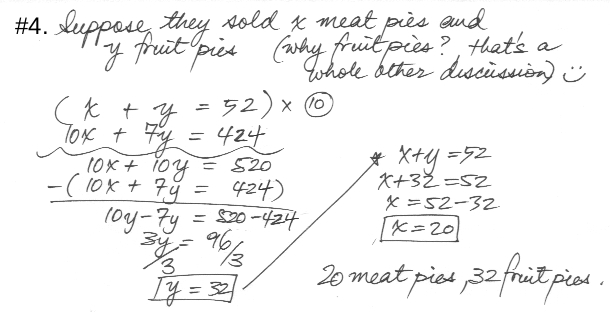 #4. Suppose, they sold x meat pies and
y fruit pies (why fruit pies? that's a
whole other discussion) ü
(x + y = 52) × ⑩
10x + 7y = 424
10x + 10y = 520
-(10x + 7y = 424)
10y-7y = 520-424
3y/3 = 96/3
y = 32
* x+y=52
x+32=52
x=52-32
x=20
20 meat pies, 32 fruit pies.